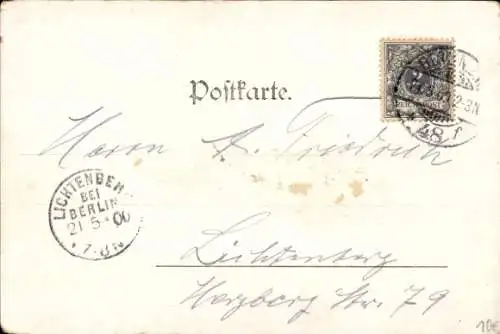 Postkarte.
BERLIN
12-3N
REICHSPOST
48 f
Herrn A. Friedrich
LICHTENBERG
BEI
BERLIN
21 5 00
7-8N
Lichtenberg
Herzberg Str. 79